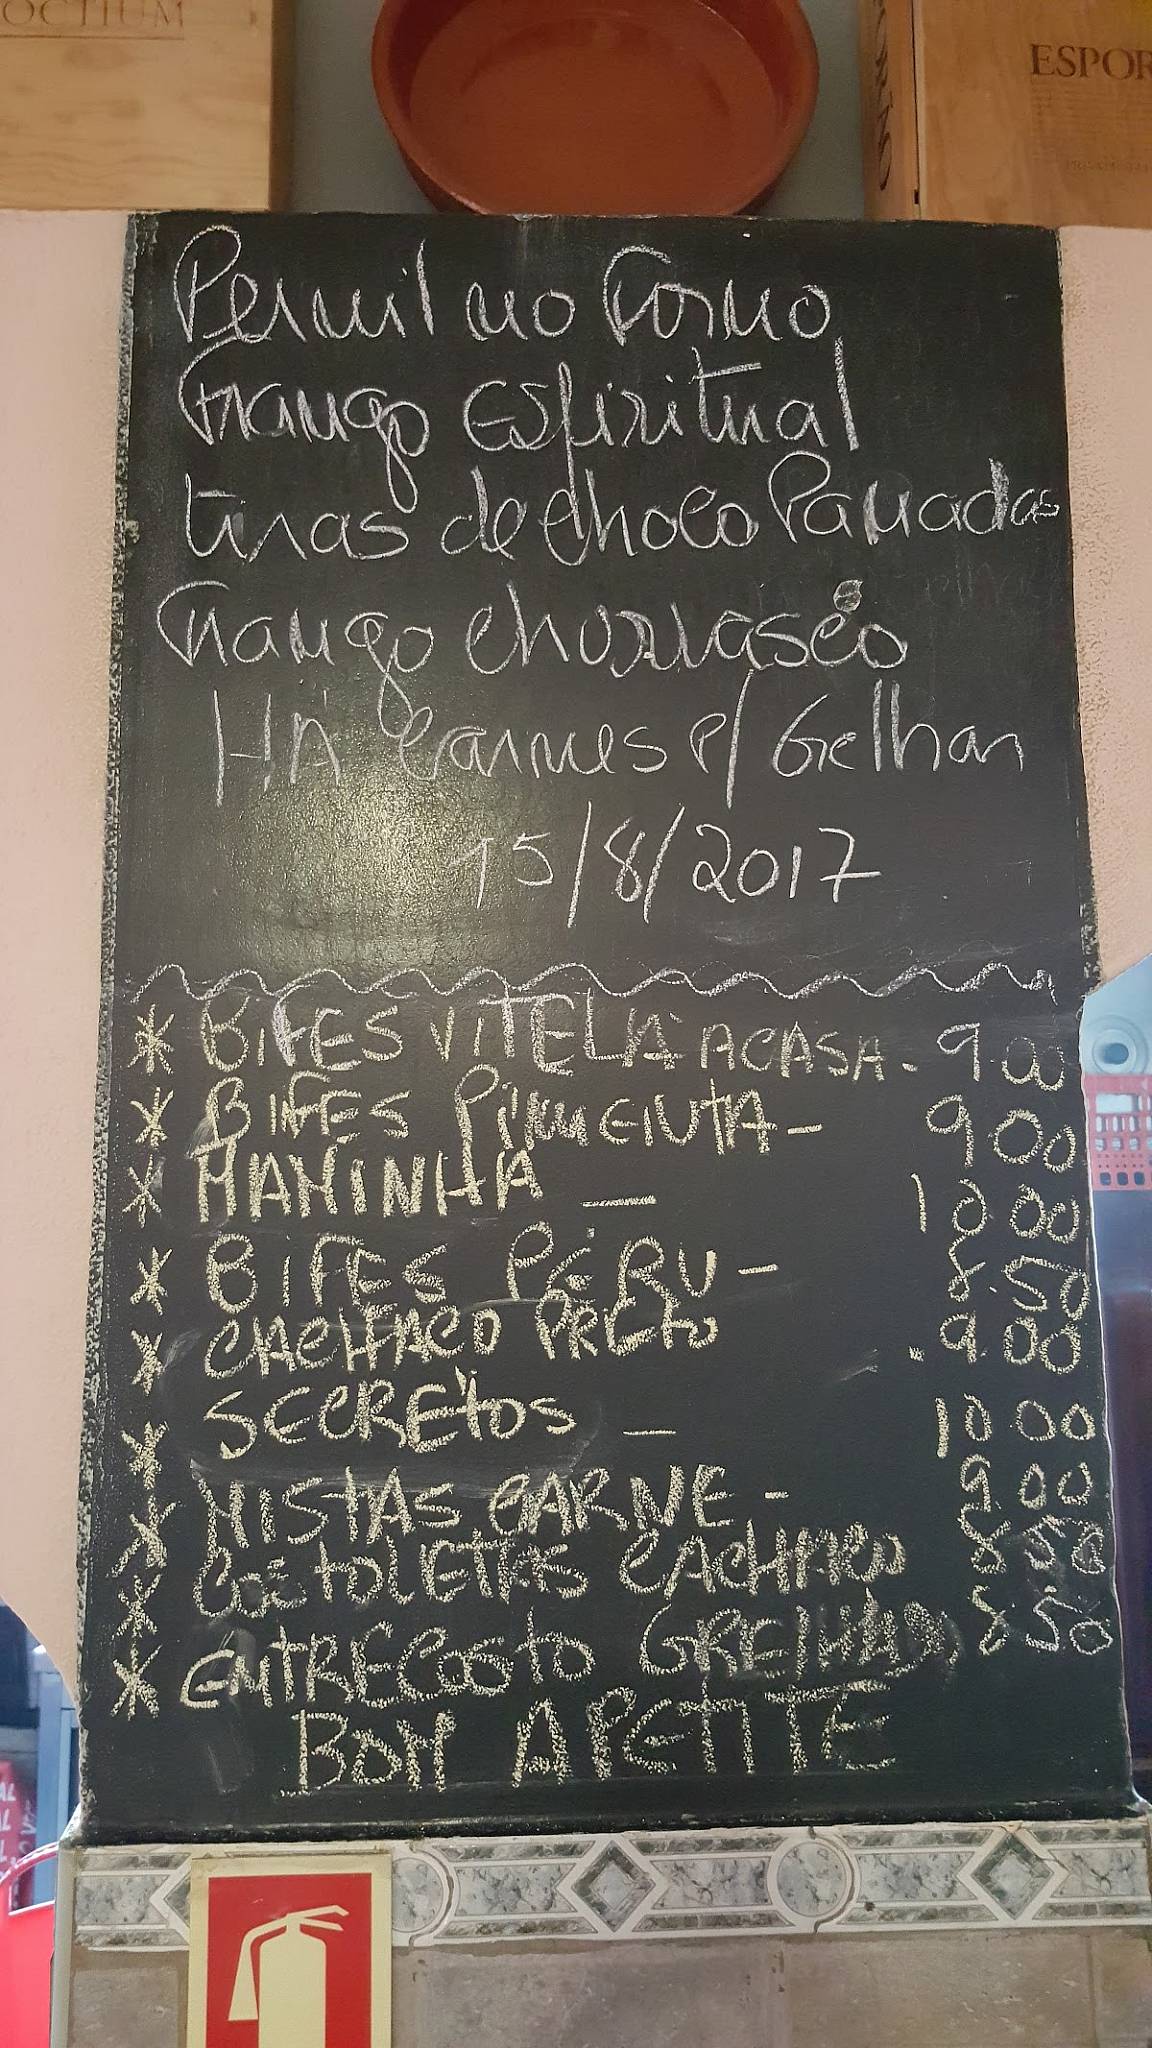 OCTIUM
ESPOR
Pernil no Forno
Frango Espiritual
tiras de choco Panadas
Frango churrasco
HÁ Carnes p/ Grelhar
15/8/2017
* BIFES VITELA A CASA - 9.00
* BIFES PIMENTA - 9 00
* MAMINHA - 10 00
* BIFES PERU - 8.50
* CACHAÇO PRETO - 9.00
* SECRETOS - 10 00
* MISTAS CARNE - 9.00
* COSTOLETAS CACHAÇO 8 50
* ENTRECOSTO GRELHADO 8 50
BOM APETITE